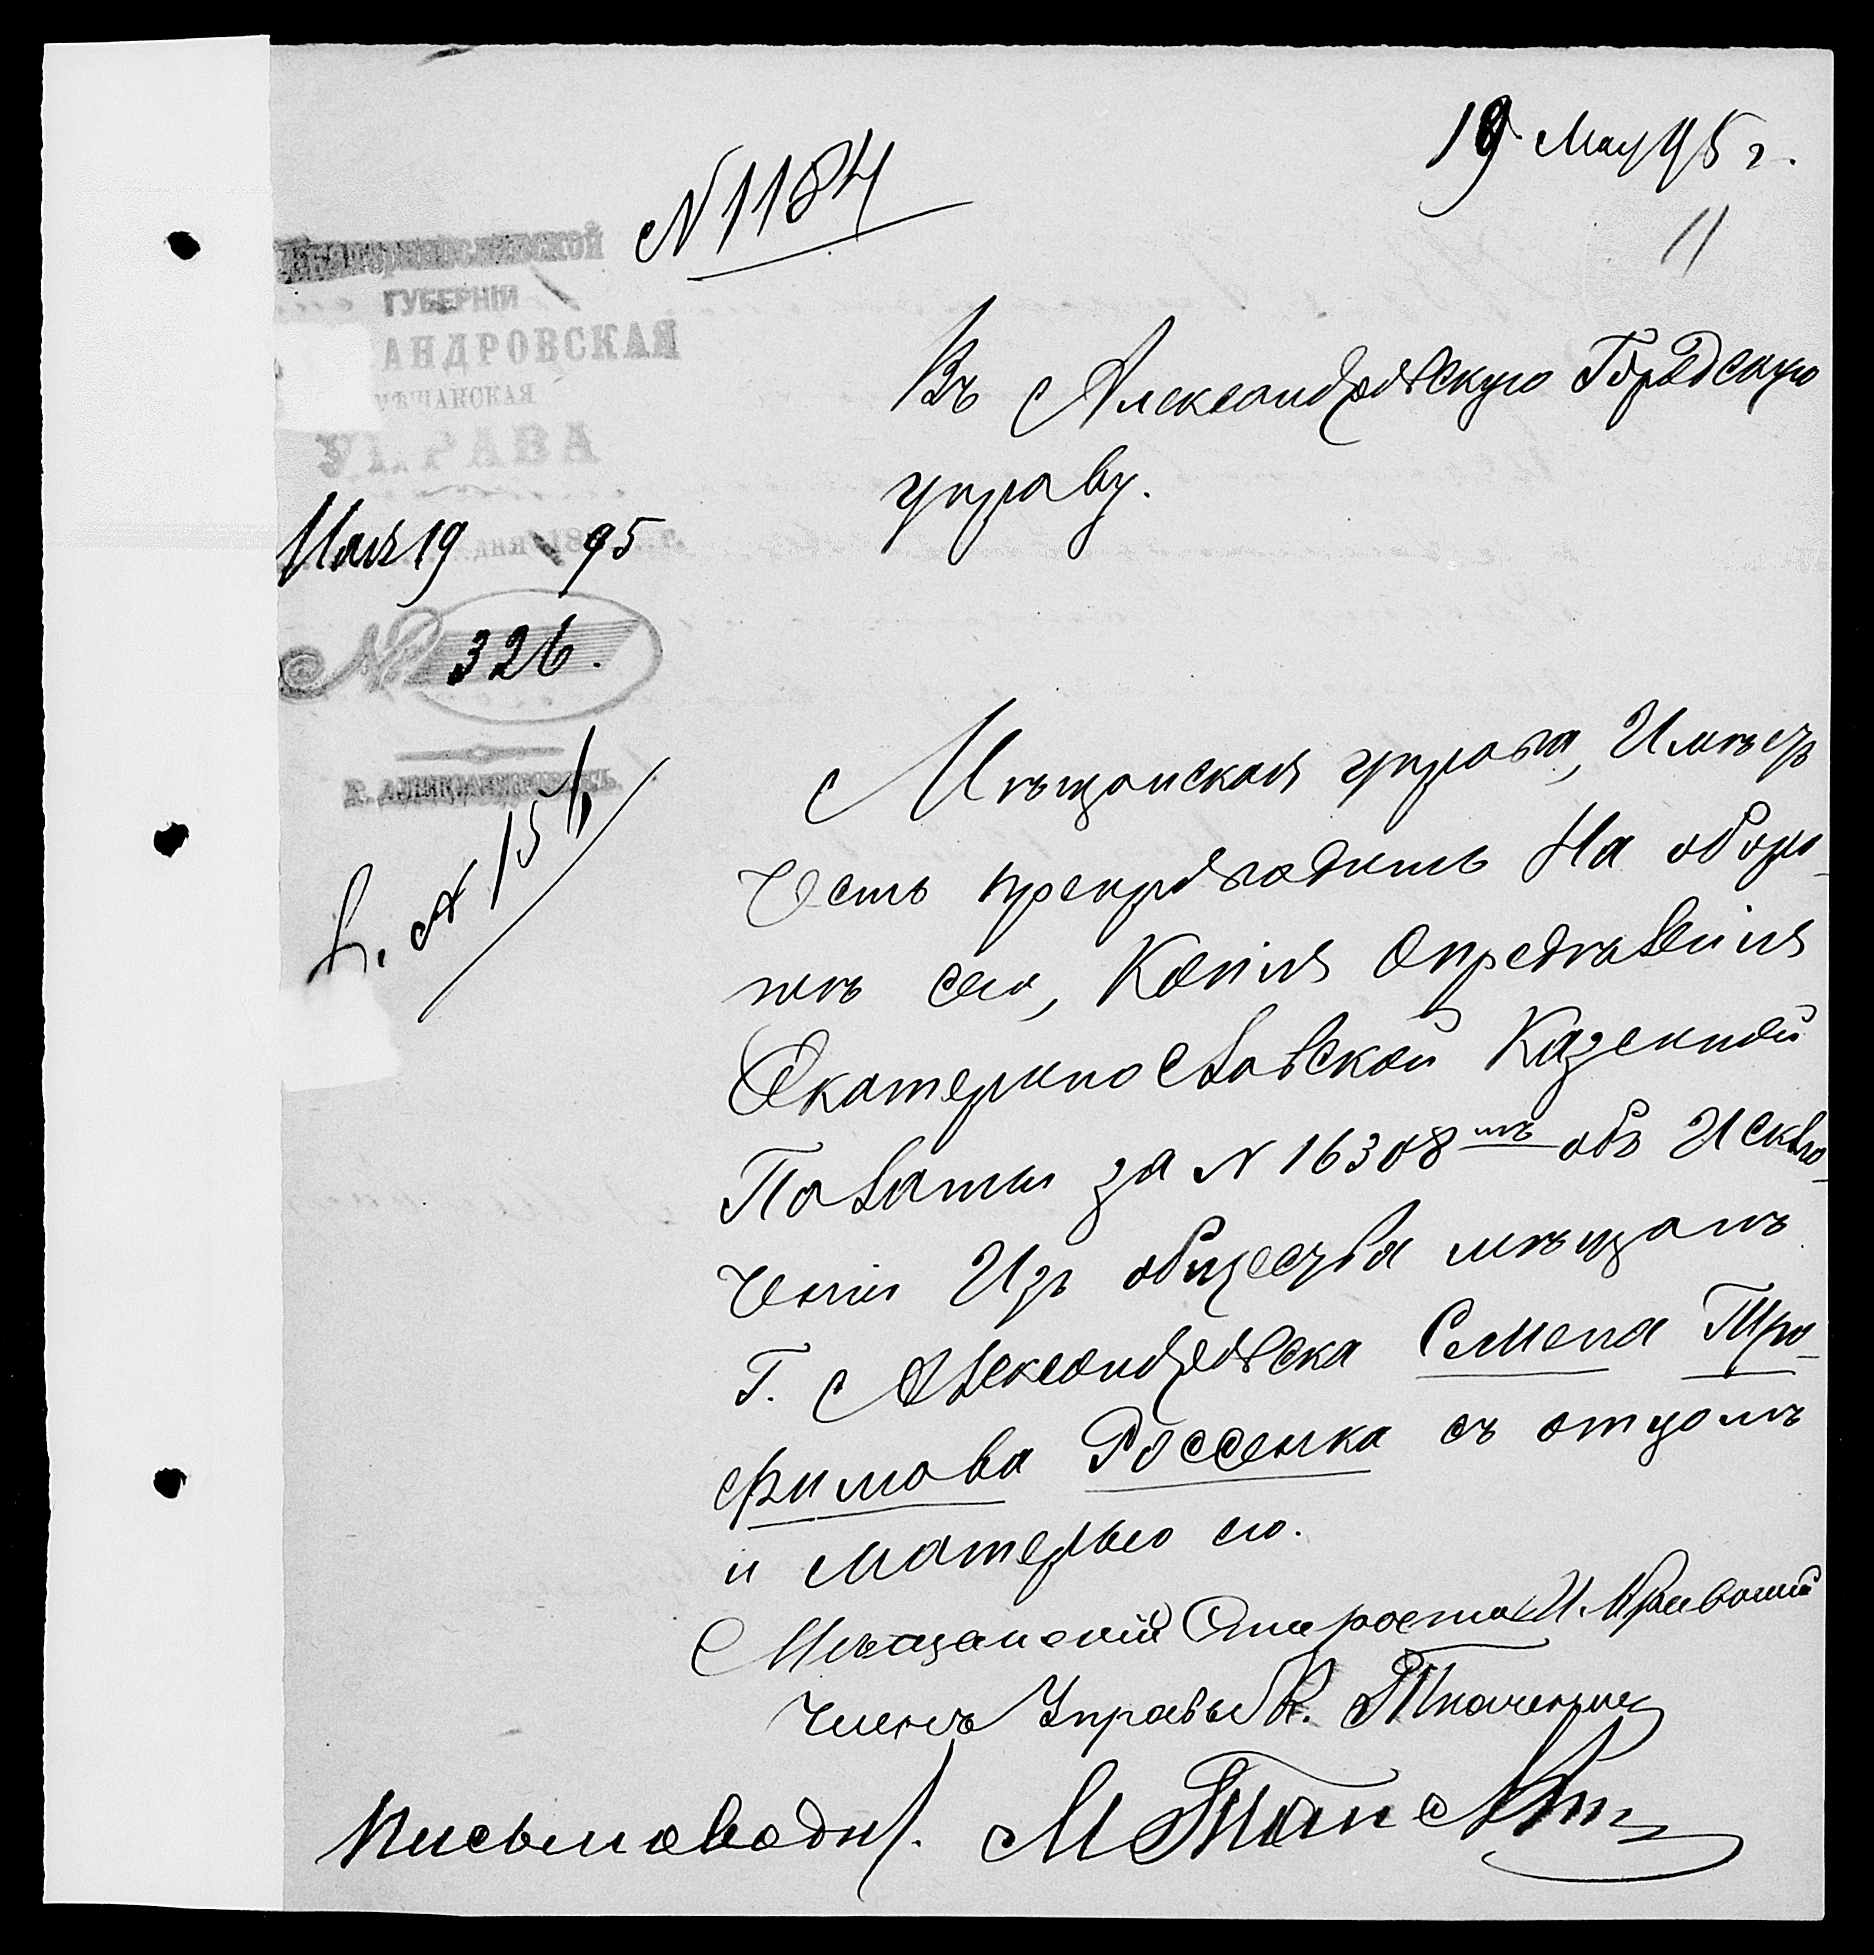 19 Мая 95 г.
N 1184
11
Екатеринославской
ГУБЕРНІИ
АНДРОВСКАЯ
МѢЩАНСКАЯ
УПРАВА
Мая 19 дня 1895 г.
№ 326.
г. Александровскъ.
Въ Александровскую Городскую
управу.
Мѣщанская управа, Имѣетъ
Честь препроводить На оборо-
тѣ сего, Копія Опредѣленія
Екатеринославской Казенной
Палаты за N 16308 мъ объ Исклю-
ченіи Изъ общества мѣщанъ
Г. Александровска Семена Тро-
фимова Россенка съ отцомъ
и матерью его.
Мѣщанскій Староста И.
Членъ Управы К. Ткаченко
Письмоводит. М